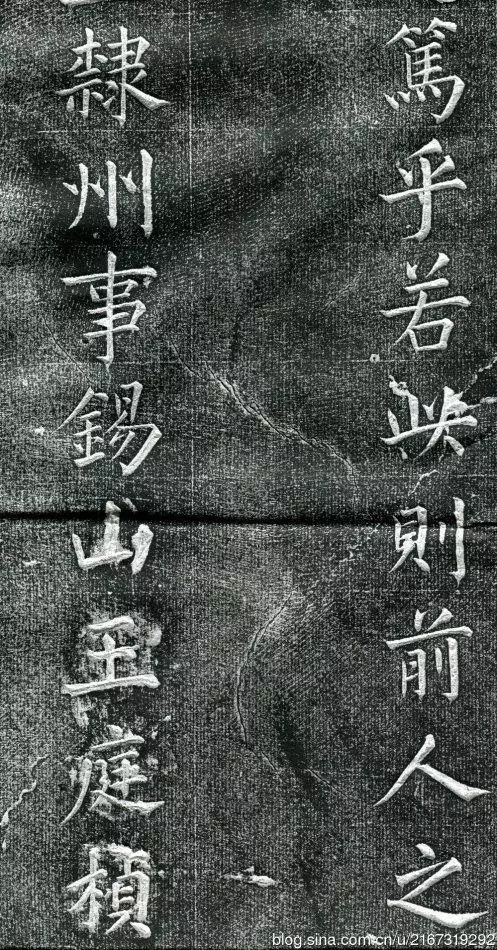 篤乎若此則前人之
隸州事錫山王庭槙
blog.sina.com.cn/u/2167319292